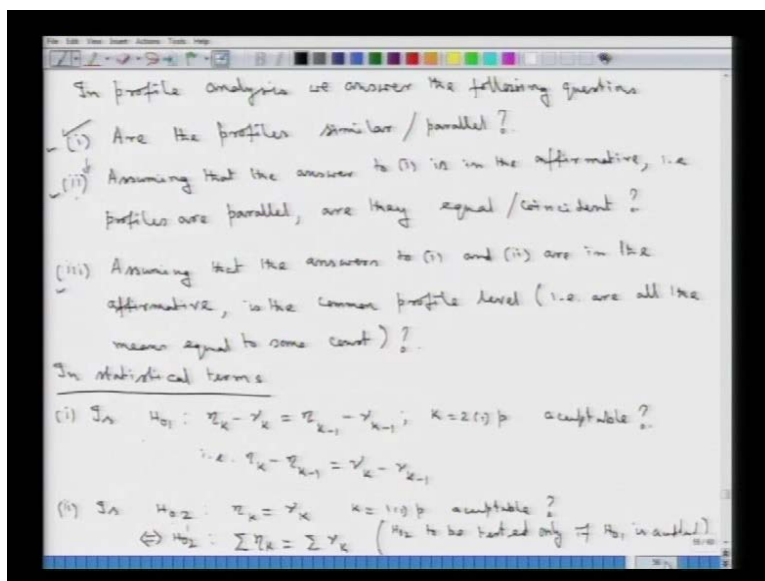 File Edit View Insert Actions Tools Help
In profile analysis we answer the following questions
(i) Are the profiles similar / parallel ?
(ii) Assuming that the answer to (i) is in the affirmative, i.e
profiles are parallel, are they equal / coincident ?
(iii) Assuming that the answers to (i) and (ii) are in the
affirmative, is the common profile level (i.e. are all the
means equal to some const) ?
In statistical terms
(i) Is H₀₁ : η_k - ν_k = η_{k-1} - ν_{k-1} ; k = 2(1)p acceptable ?
i.e. η_k - η_{k-1} = ν_k - ν_{k-1}
(ii) Is H₀₂ : η_k = ν_k k = 1(1)p acceptable ?
⇔ H'₀₂ : Σ η_k = Σ ν_k (H₀₂ to be tested only if H₀₁ is accepted)